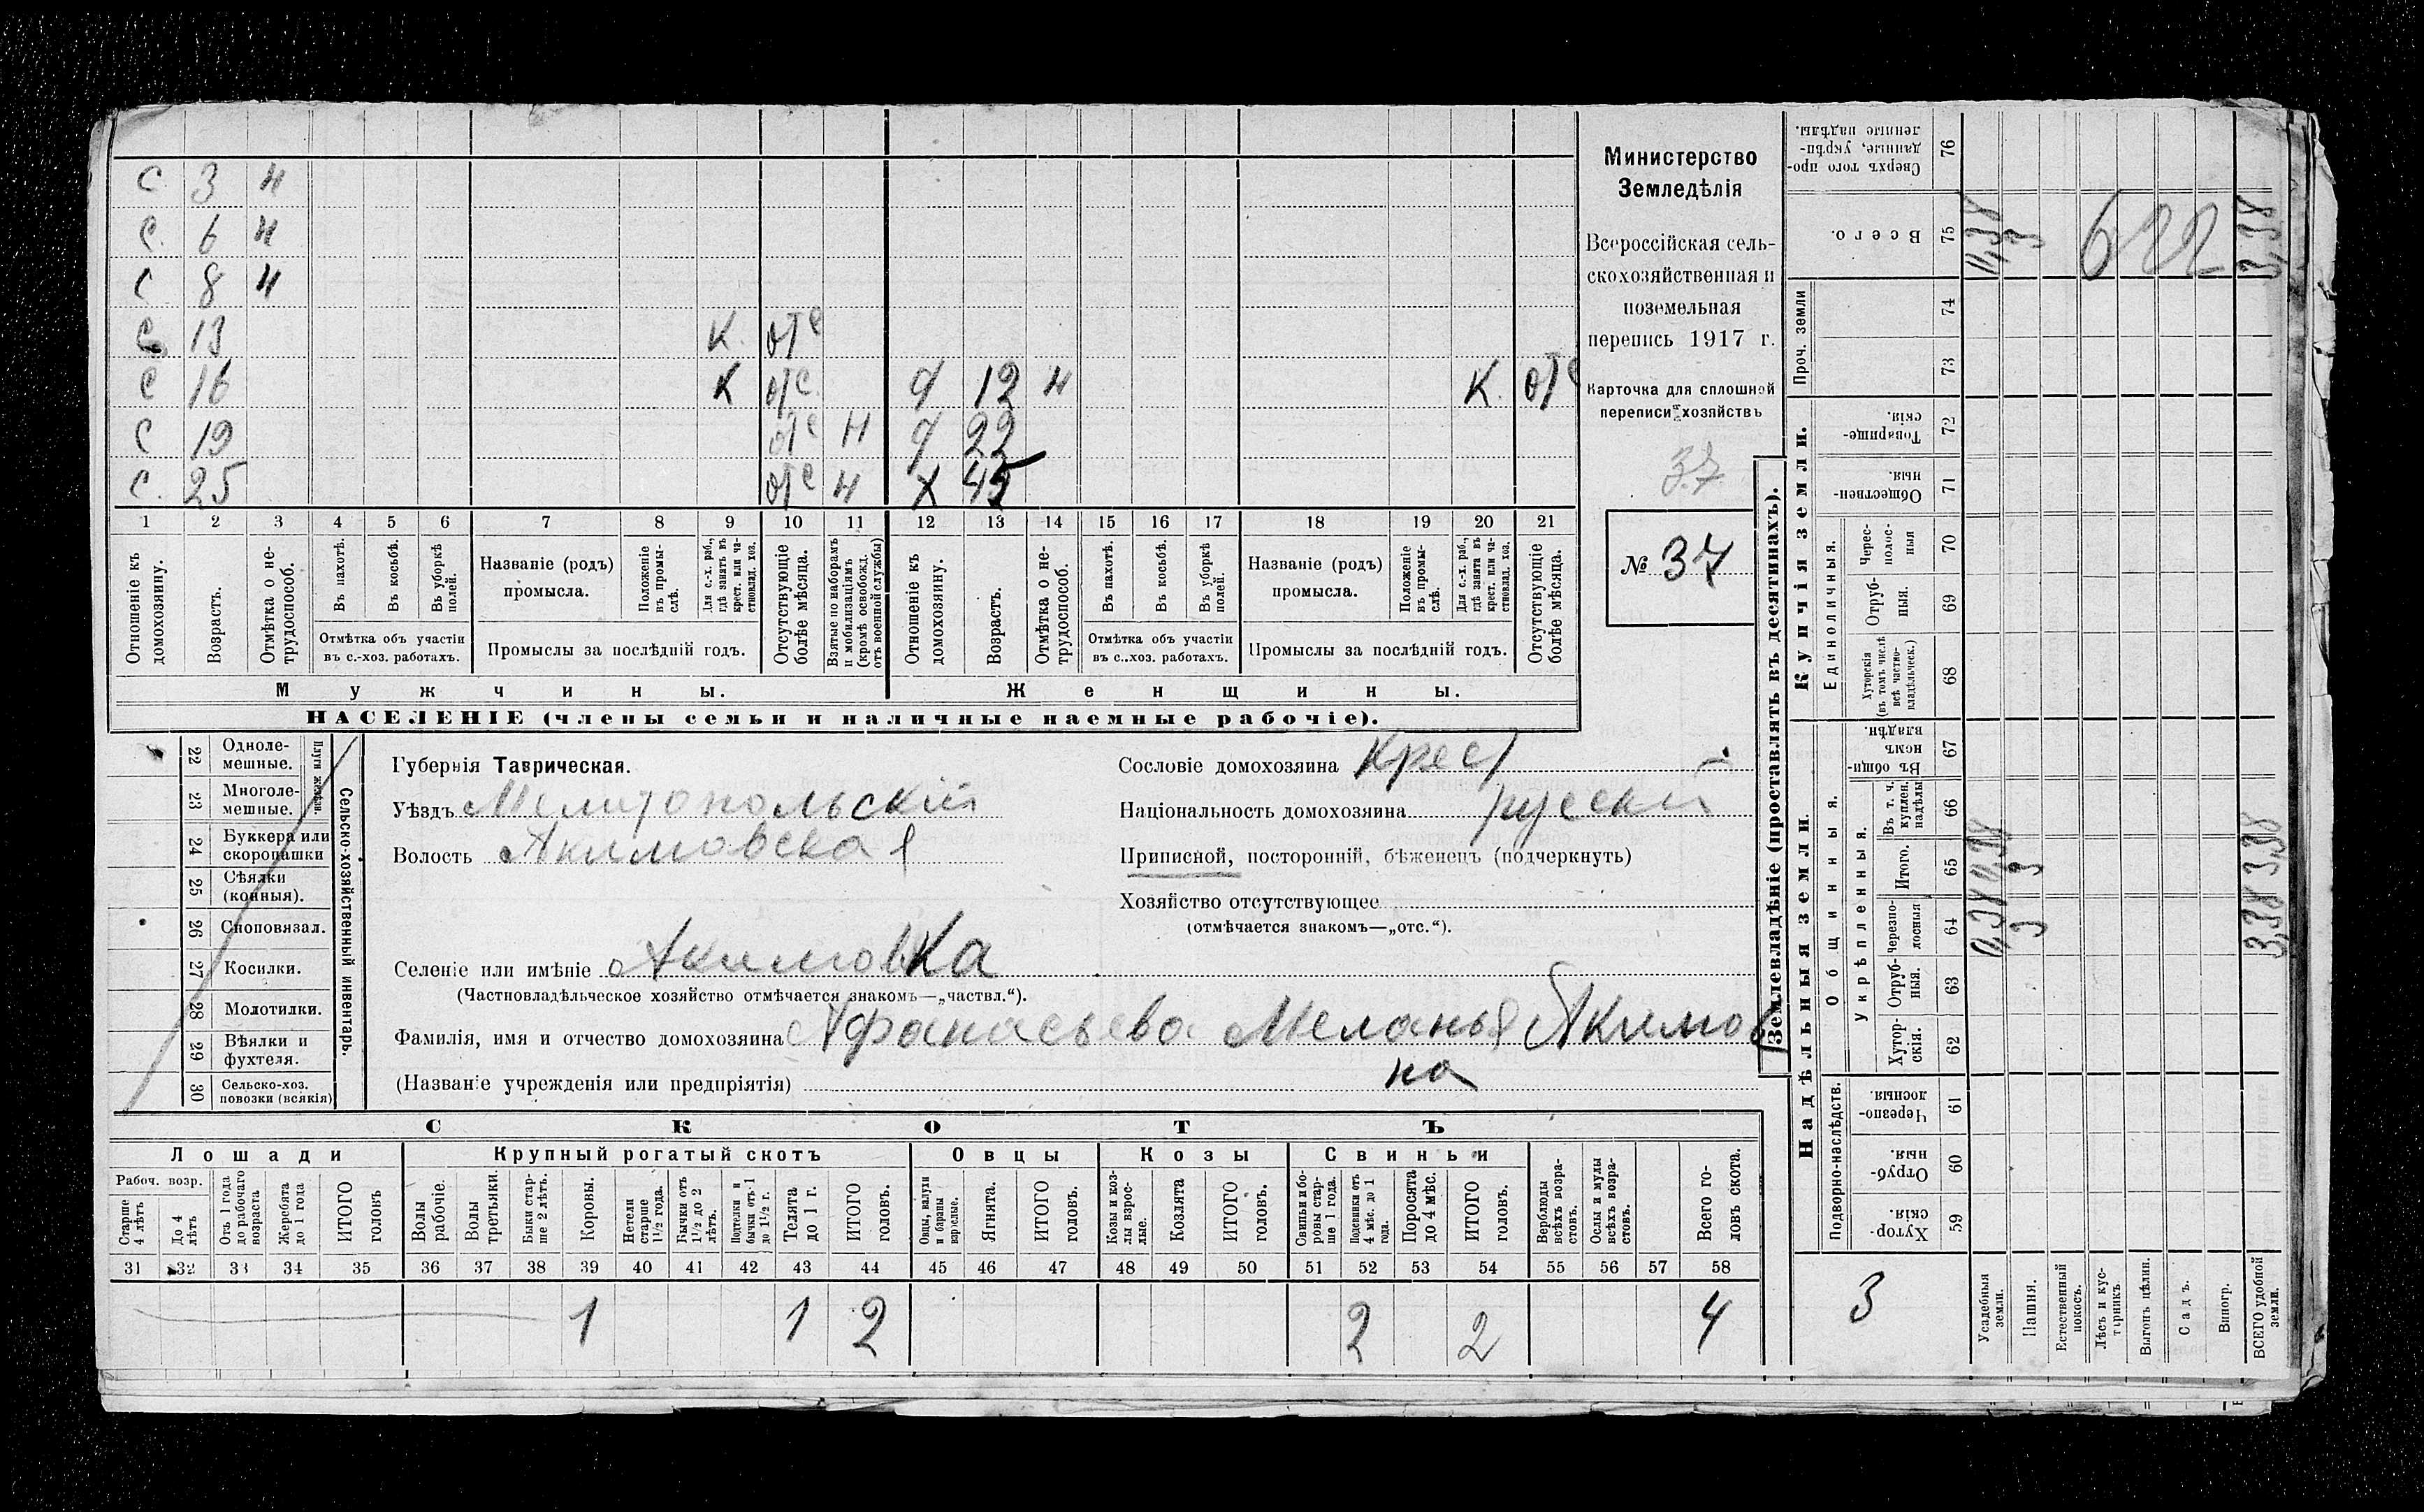 С. 3 н
С. 6 н
С 8 н
С. 13 К. отс
С 16 К отс. д 12 н К. отс
С 19 отс н д 22
С. 25 отс н Х 45
1 2 3 4 5 6 7 8 9 10 11 12 13 14 15 16 17 18 19 20 21
Отношеніе къ домохозяину.
Возрастъ.
Отмѣтка о не-трудоспособ.
Въ пахотѣ.
Въ косьбѣ.
Въ уборкѣ полей.
Отмѣтка объ участіи
въ с.-хоз. работахъ.
Названіе (родъ)
промысла.
Положеніе въ промы-слѣ.
Для с.-х. раб., гдѣ занятъ въ крест. или ча-стновлад. хоз.
Промыслы за послѣдній годъ.
Отсутствующіе болѣе мѣсяца.
Взятые по наборамъ и мобилизаціямъ (кромѣ освобожд. отъ военной службы)
Отношеніе къ домохозяину.
Возрастъ.
Отмѣтка о не-трудоспособ.
Въ пахотѣ.
Въ косьбѣ.
Въ уборкѣ полей.
Отмѣтка объ участіи
въ с..хоз. работахъ.
Названіе (родъ)
промысла.
Положеніе въ промы-слѣ.
Для с.-х. раб., гдѣ занята въ крест. или ча-стновлад. хоз.
Промыслы за послѣдній годъ.
Отсутствующіе болѣе мѣсяца.
Мужчины.
Женщины.
НАСЕЛЕНІЕ (члены семьи и наличные наемные рабочіе).
Министерство
Земледѣлія
Всероссійская сель-
скохозяйственная и
поземельная
перепись 1917 г.
Карточка для сплошной
переписи хозяйствъ
37
№ 37
22 Одноле-мешные.
23 Многоле-мешные.
24 Буккера или скоропашки
25 Сѣялки (конныя).
26 Сноповязал.
27 Косилки.
28 Молотилки.
29 Вѣялки и фухтеля.
30 Сельско-хоз. повозки (всякія)
Сельско-хозяйственный инвентарь.
Губернія Таврическая.
Уѣздъ Мелитопольский
Волость Акимовская
Селеніе или имѣніе Акимовка
(Частновладѣльческое хозяйство отмѣчается знакомъ—„частвл.“).
Фамилія, имя и отчество домохозяина Афанасьева Меланья Акимов
на
(Названіе учрежденія или предпріятія)
Сословіе домохозяина Крест
Національность домохозяина русский
Приписной, посторонній, бѣженецъ (подчеркнуть)
Хозяйство отсутствующее
(отмѣчается знакомъ—„отс.“).
СКОТЪ
Лошади
Крупный рогатый скотъ
Овцы
Козы
Свиньи
Рабоч. возр.
Старше 4 лѣтъ
До 4 лѣтъ
Отъ 1 года до рабочаго возраста
Жеребята до 1 года
ИТОГО головъ
Волы рабочіе.
Волы третьяки.
Быки стар-ше 2 лѣтъ.
Коровы.
Нетели старше 1½ года.
Бычки отъ 1½ до 2 лѣтъ.
Подтелки и бычки отъ 1 до 1½ г.
Телята до 1 г.
ИТОГО головъ.
Овцы, валухи и бараны взрослые.
Ягнята.
ИТОГО головъ.
Козы и коз-лы взрос-лые.
Козлята
ИТОГО головъ.
Свиньи и бо-ровы стар-ше 1 года.
Подсвинки отъ 4 мѣс. до 1 года.
Поросята до 4 мѣс.
ИТОГО головъ.
Верблюды всѣхъ возра-стовъ.
Ослы и мулы всѣхъ возра-стовъ.
Всего го-ловъ скота.
31 32 33 34 35 36 37 38 39 40 41 42 43 44 45 46 47 48 49 50 51 52 53 54 55 56 57 58
1 1 2 2 2 4
Землевладѣніе (проставлять въ десятинахъ).
Сверхъ того про-данные, укрѣп-ленные надѣлы. 76
Всего. 75 3 3,38
622
Проч. земли 74
73
Купчія земли.
Товарище-скія. 72
Обществен-ныя. 71
Единоличныя.
Черес-полос-ныя 70
Отруб-ныя. 69
Хуторскія (въ томъ числѣ всѣ частно-владѣльческ.) 68
Надѣльныя земли.
Общинныя.
Въ общи-номъ владѣн. 67
Укрѣпленныя.
Въ т. ч. куплен. надѣлы 66
Итого. 65 3 3,38
Черезпо-лосныя 64 3 3,38
Отруб-ныя. 63
Хутор-скія. 62
Подворно-наслѣдств.
Черезпо-лосныя. 61
Отруб-ныя. 60
Хутор-скія. 59
3
Усадебныя земли.
Пашня.
Естественный покосъ.
Лѣсъ и кус-тарникъ
Выгонъ цѣлин.
Садъ.
Виногр.
ВСЕГО удобной земли.